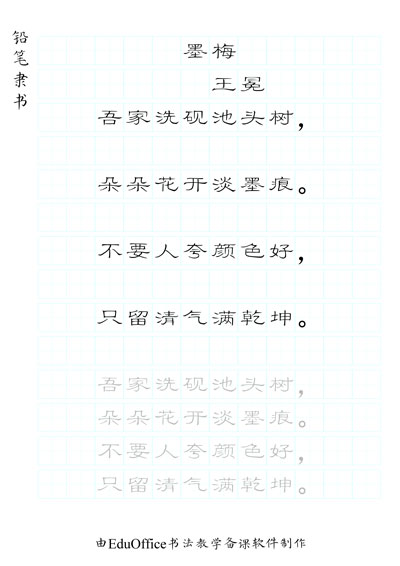 铅笔隶书
墨梅
王冕
吾家洗砚池头树，
朵朵花开淡墨痕。
不要人夸颜色好，
只留清气满乾坤。
吾家洗砚池头树，
朵朵花开淡墨痕。
不要人夸颜色好，
只留清气满乾坤。
由EduOffice书法教学备课软件制作